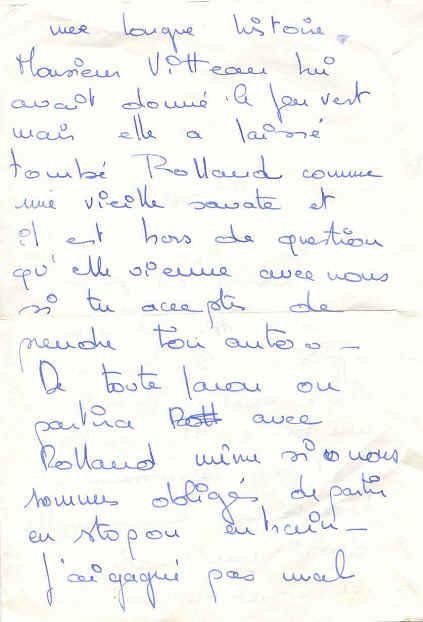 une longue histoire.
Monsieur Vitteau lui
avait donné le feu vert
mais elle a laissé
tombé Rolland comme
une vieille savate et
il est hors de question
qu'elle vienne avec nous
si tu acceptes de
prendre ton auto –
De toute facon on
partira Roll avec
Rolland même si nous
sommes obligés de partir
en stop ou en train –
J'ai gagné pas mal